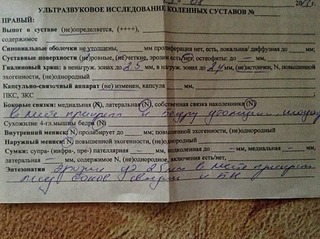 УЛЬТРАЗВУКОВОЕ ИССЛЕДОВАНИЕ КОЛЕННЫХ СУСТАВОВ №
ПРАВЫЙ:
Выпот в суставе (не)определяется, (++++),
содержимое
Синовиальные оболочки не утолщены, мм, пролиферации нет, есть, локальная/ диффузная до мм;
Суставные поверхности (не)ровные, (не)четкие, эрозии нет, остеофиты: до — мм,
Гиалиновый хрящ: в ненагруж. зонах до 2.5 мм, в нагруж. зонах до мм, (не)истончен, N, повышен.
эхогенности, (не)однородный
Капсульно-связочный аппарат (не) изменен, капсула мм,
ПКС, ЗКС
Боковые связки: медиальная (N), латеральная (N), собственная связка наколенника (N)
в месте к
Сухожилие 4-гл.мышцы бедра (N)
Внутренний мениск (N) пролабирует до мм; повышен. эхогенности, (не)однородный
Наружный мениск (N) повышен. эхогенности, (не)однородный
Сумки: супра- (инфра-, пре-) пателлярная — мм, подколенная до мм, медиальная — мм,
латеральная мм, содержимое N, (не)однородное, включения есть/нет,
Энтезопатии 2.5 мм в месте